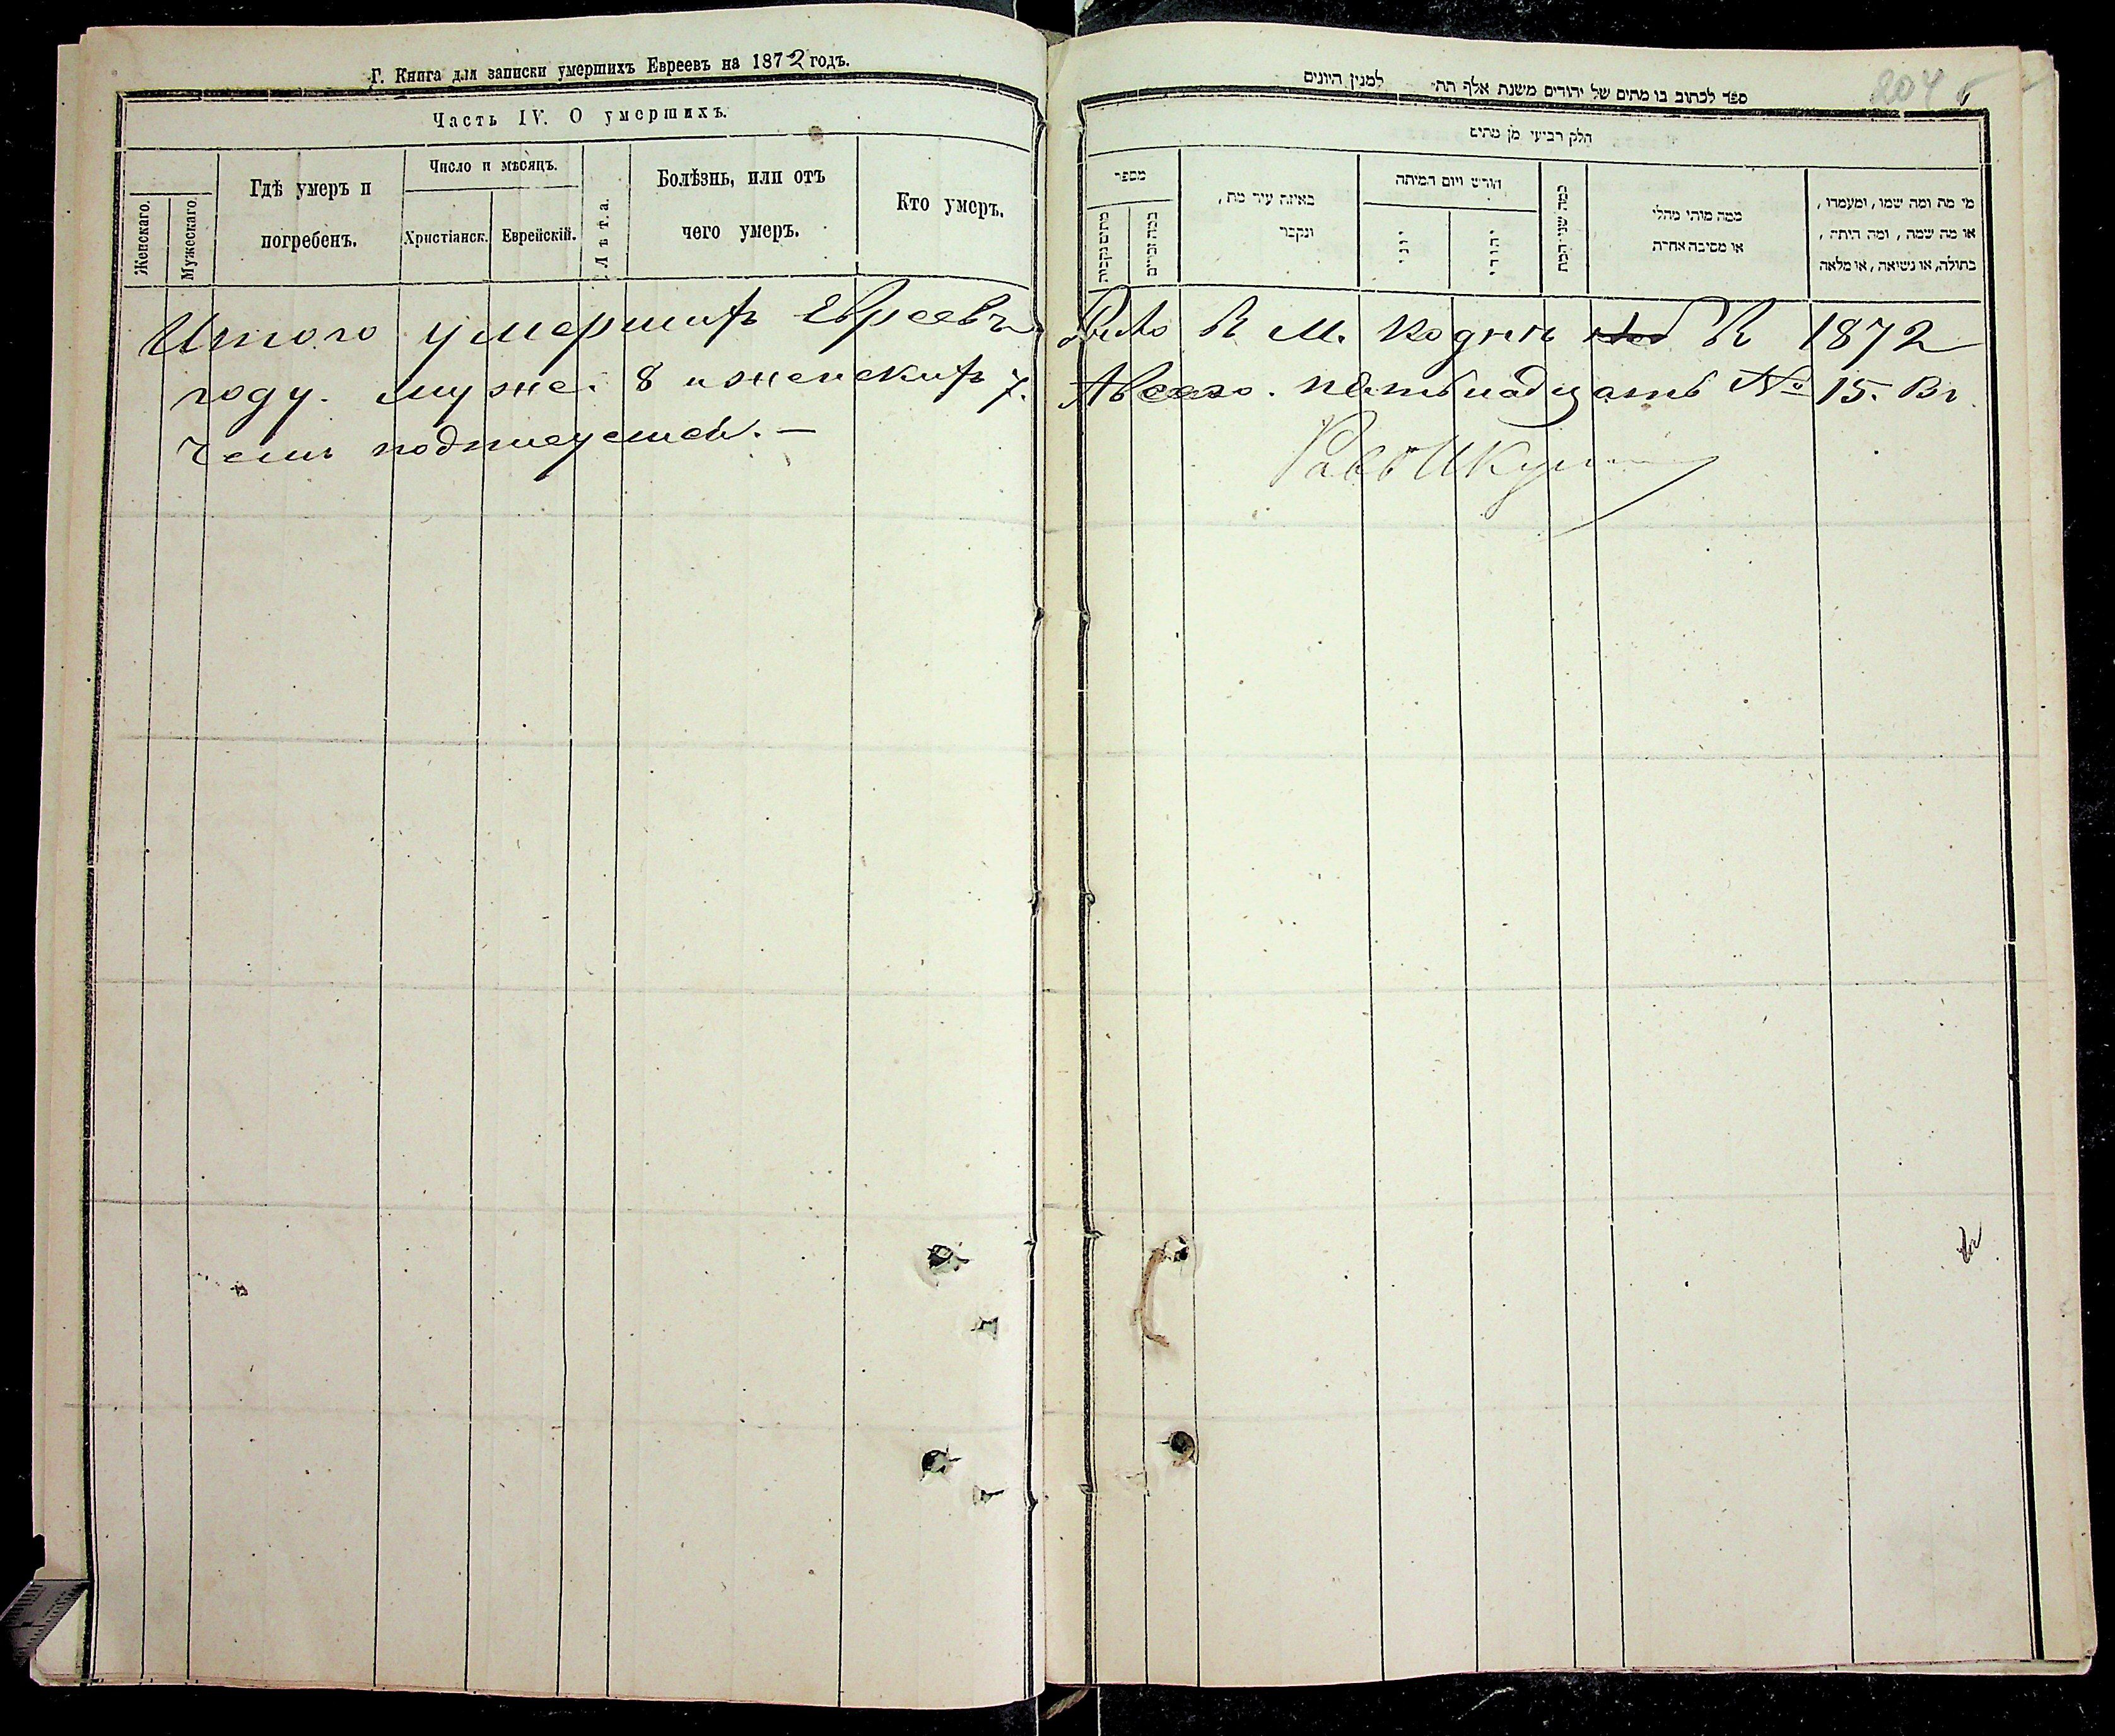 Г. Книга для записки умершихъ Евреевъ на 1872 годъ.
Часть IV. О умершихъ.
Женскаго.
Мужескаго.
Гдѣ умеръ и погребенъ.
Число и мѣсяцъ.
Христіанск.
Еврейскій.
Лѣта.
Болѣзнь, или отъ чего умеръ.
Кто умеръ.
ספר לכתוב בו מתים של יהודים משנת אלף תת למנין היונים
204
חלק רביעי מן מתים
מספר
מתים נקבות
כמה זכרים
באיזה עיר מת,
ונקבר
חודש ויום המיתה
יוני
יהודי
כמה שני המת
ממה מותי מחלי
או מסיבה אחרת
מי מת ומה שמו, ומעמדו,
או מה שמה, ומה היתה,
בתולה, או נשיאה, או מלאה
Итого умершихъ Евреевъ было в м. Коднѣ в 1872
году. муже: 8 и женскихъ 7. А всего. пятьнадцать № 15. Въ
чемъ подписуемся. —